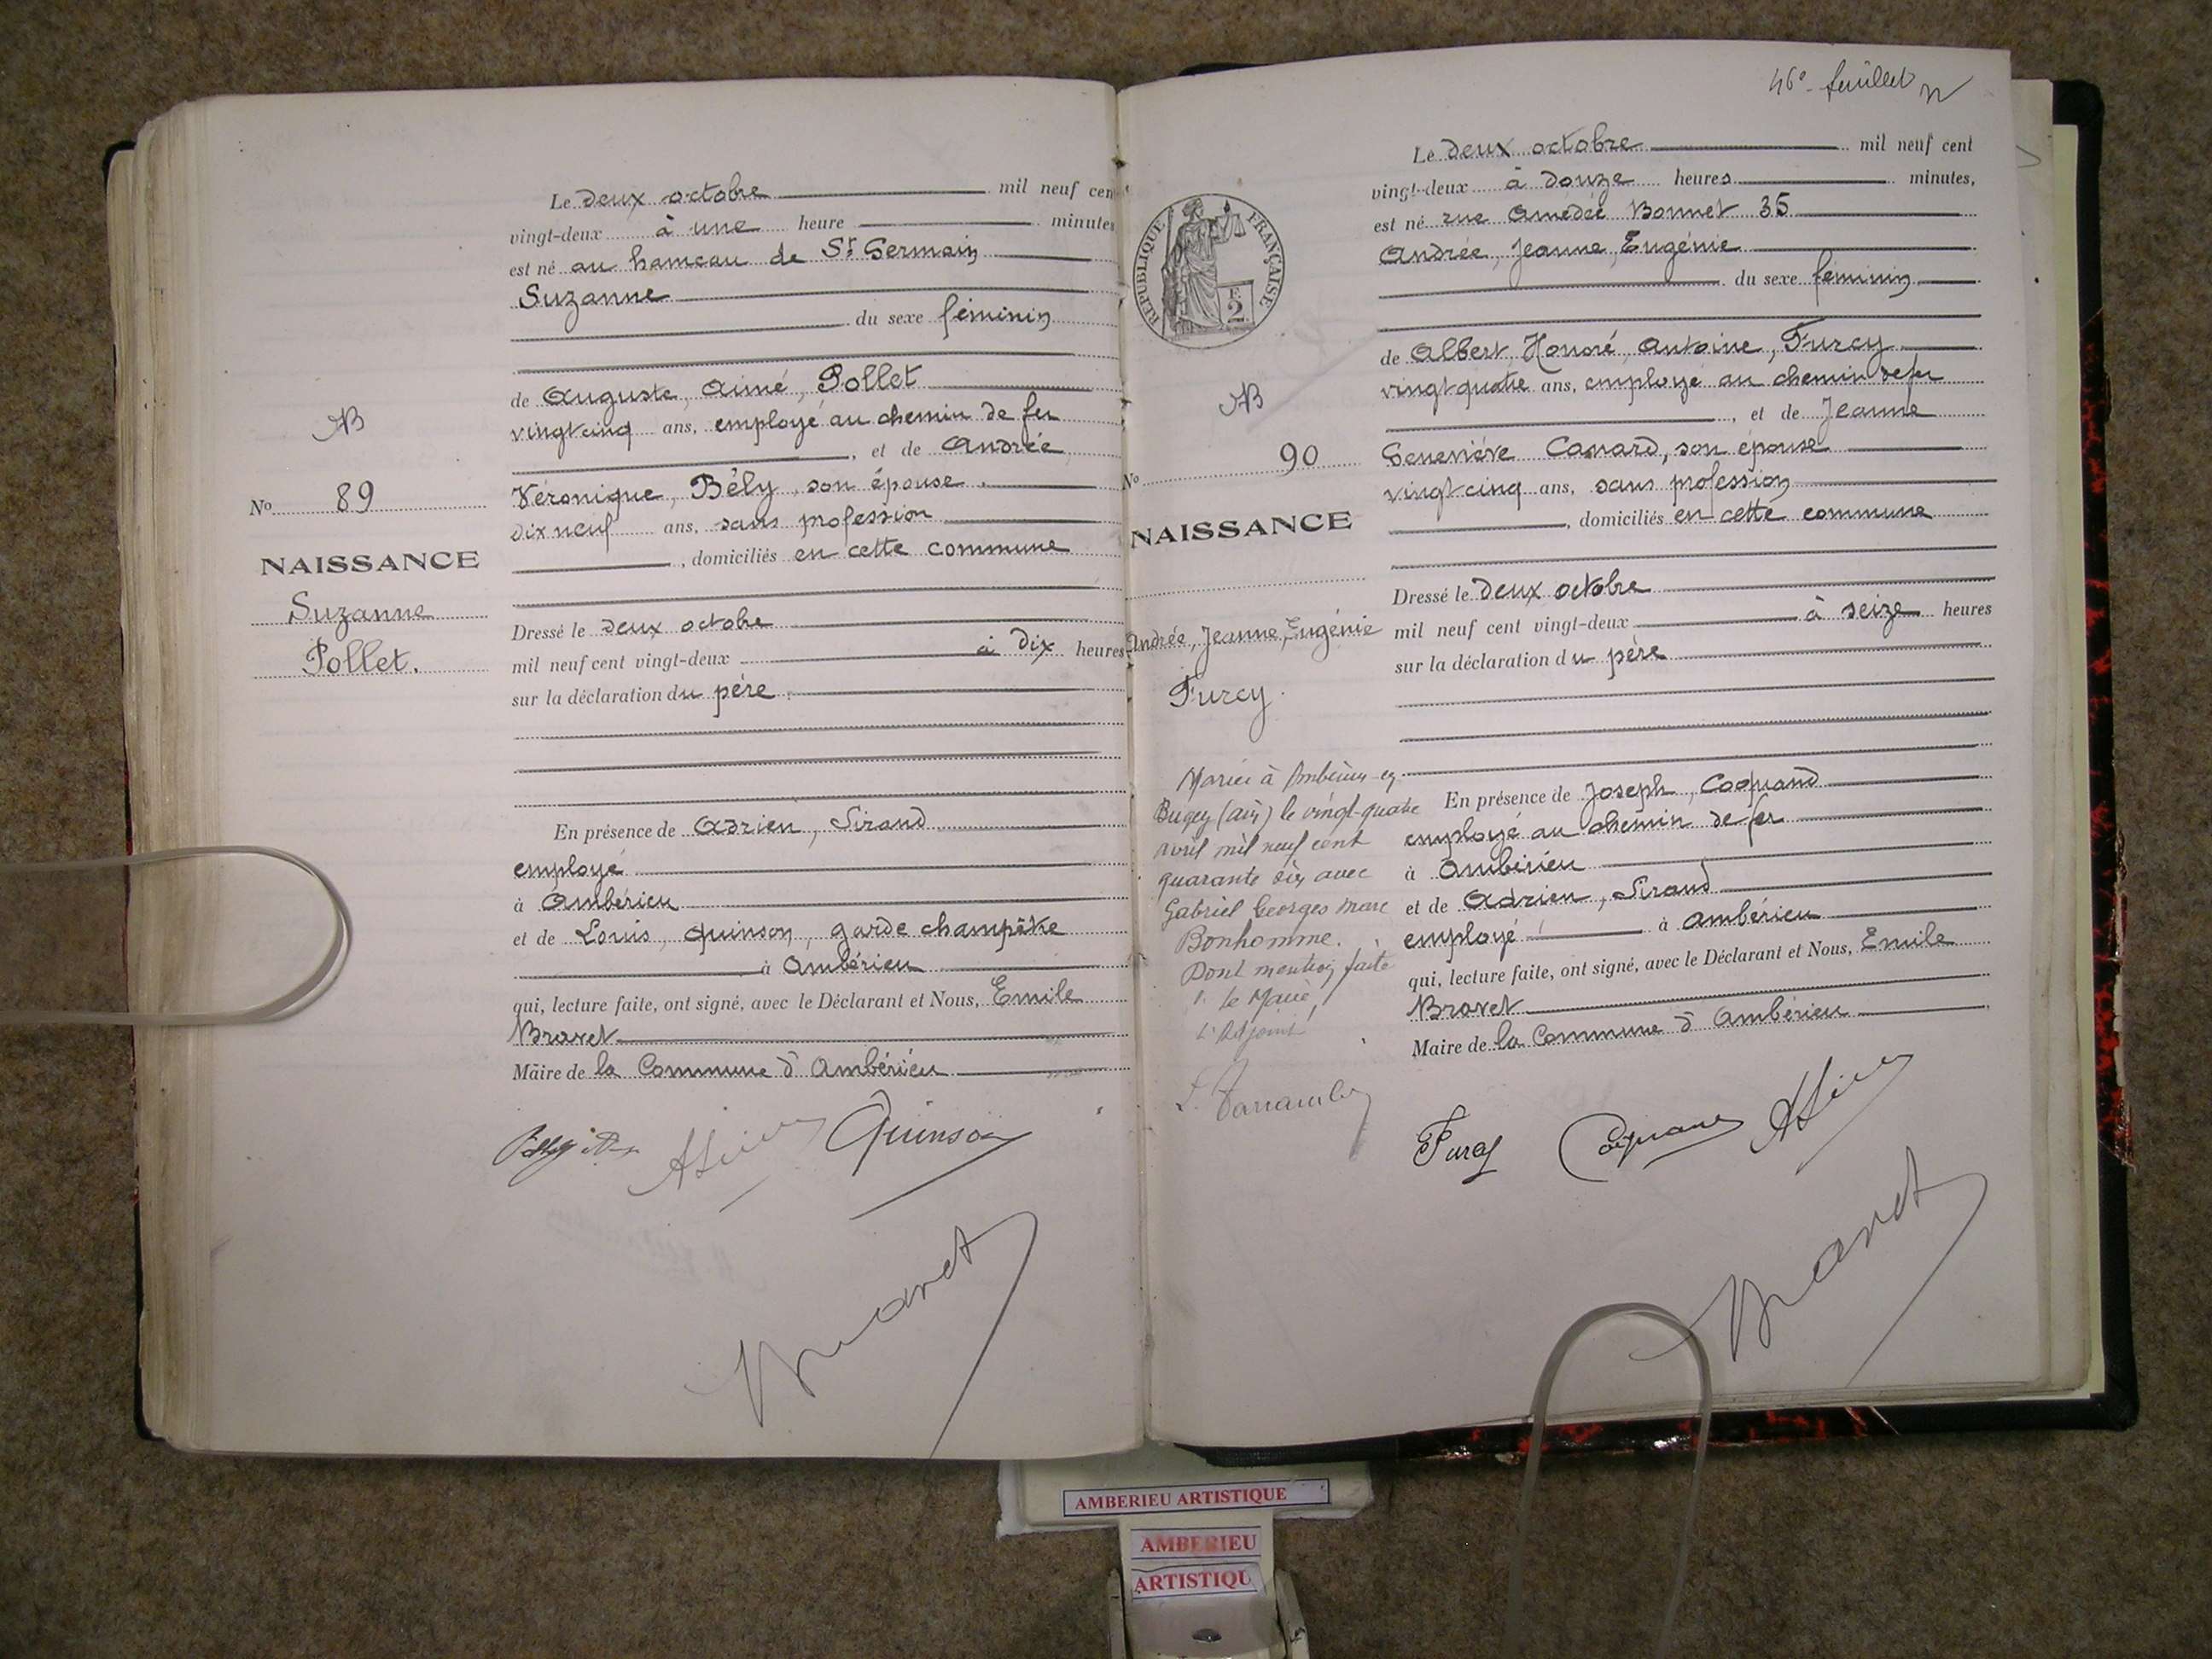 Le deux octobre mil neuf cen
vingt-deux à une heure minutes
est né au hameau de St Germain
Suzanne
du sexe féminin
de Auguste, Aimé, Pollet
vingt cinq ans, employé au chemin de fer
, et de Andrée
Véronique, Bély, son épouse.
dix neuf ans, sans profession
, domiciliés en cette commune
Dressé le deux octobre
mil neuf cent vingt-deux à dix heures
sur la déclaration du père.
En présence de Adrien, Sirand
employé
à Ambérieu
et de Louis, Quinson, garde champêtre
à Ambérieu
qui, lecture faite, ont signé, avec le Déclarant et Nous, Emile
Bravet
Maire de la Commune d'Ambérieu
Quinson
Bravet
AB
No 89
NAISSANCE
Suzanne
Pollet.
46e feuillet
Le deux octobre mil neuf cent
vingt-deux à douze heures minutes,
est né rue Amédée Bonnet 35
Andrée, Jeanne, Eugénie
du sexe féminin
de Albert Honoré, Antoine, Furcy
vingt quatre ans, employé au chemin de fer
, et de Jeanne
Geneviève Canard, son épouse
vingt cinq ans, sans profession
, domiciliés en cette commune
Dressé le deux octobre
mil neuf cent vingt-deux à seize heures
sur la déclaration du père
En présence de Joseph, Coquand
employé au chemin de fer
à Ambérieu
et de Adrien, Sirand
employé à Ambérieu
qui, lecture faite, ont signé, avec le Déclarant et Nous, Emile
Bravet
Maire de la Commune d'Ambérieu
Furcy Coquand
Bravet
RÉPUBLIQUE FRANÇAISE
F.
2
AB
No 90
NAISSANCE
Andrée, Jeanne, Eugénie
Furcy.
Mariée à Ambérieu-en-
Bugey (Ain) le vingt-quatre
avril mil neuf cent
quarante six avec
Gabriel Georges Marc
Bonhomme.
Dont mention faite
le Maire,
L'Adjoint
AMBERIEU ARTISTIQUE
AMBERIEU
ARTISTIQU